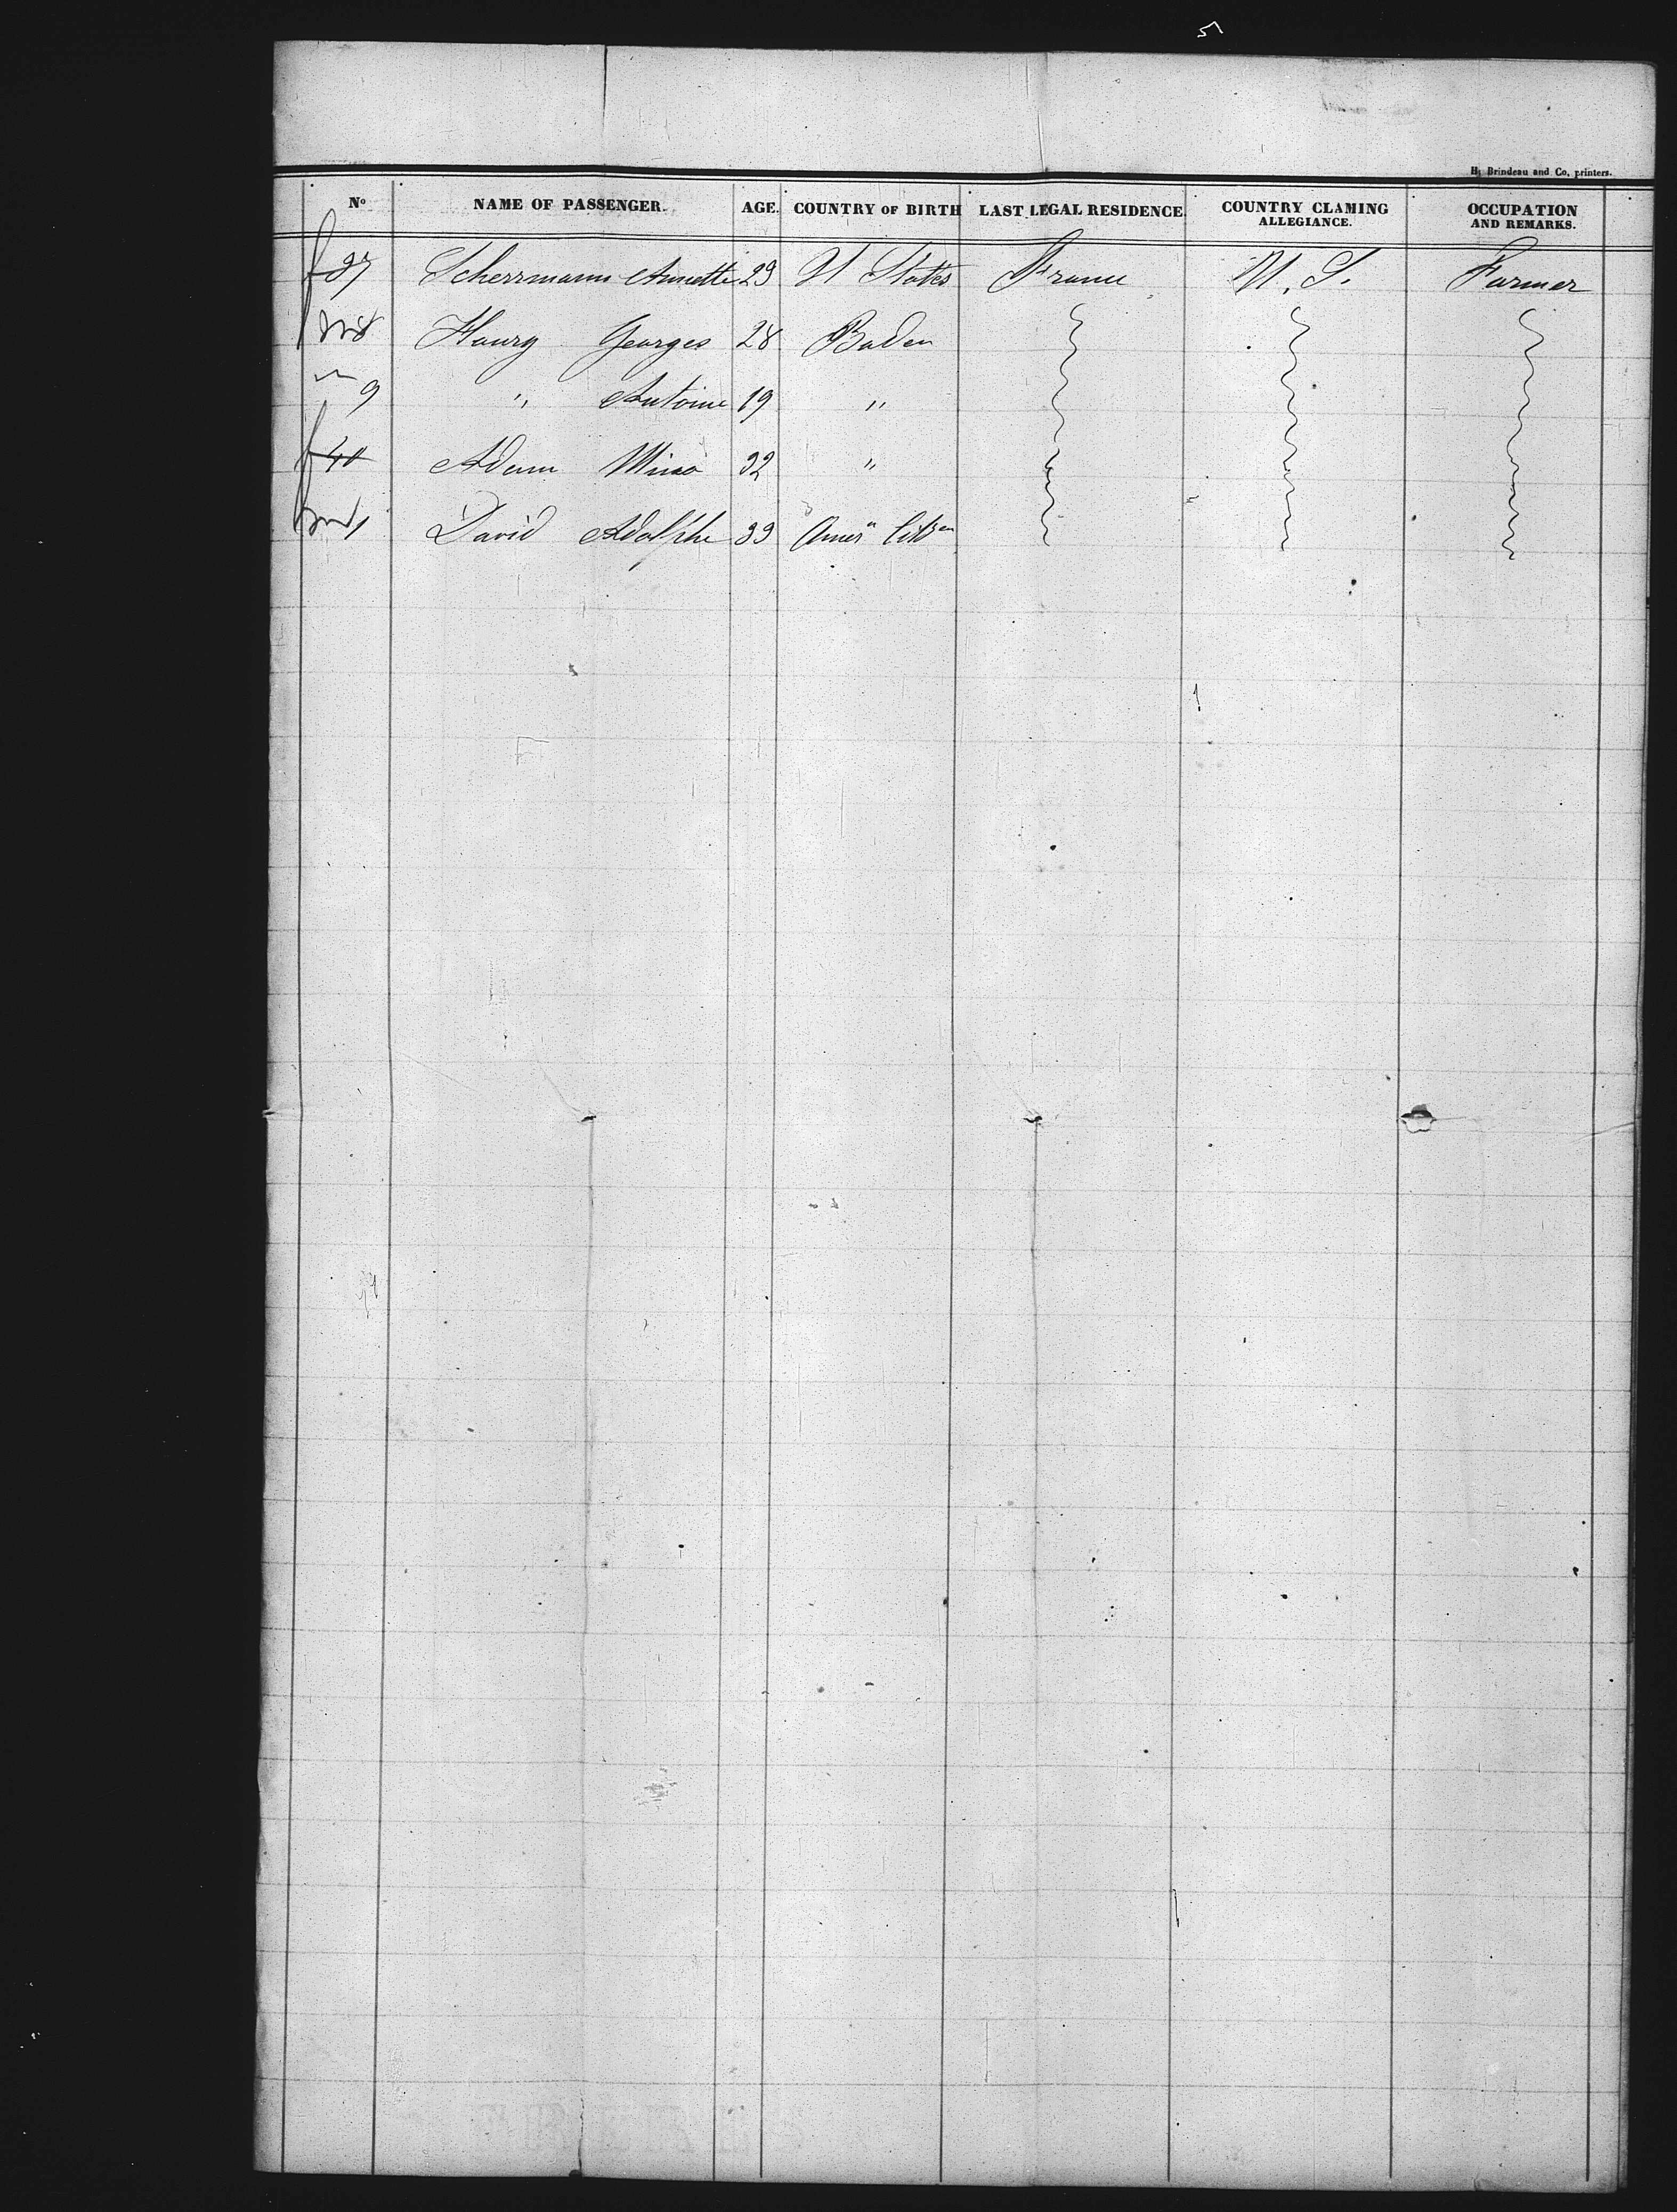 5
H. Brindeau and Co, printers.
No NAME OF PASSENGER. AGE. COUNTRY OF BIRTH LAST LEGAL RESIDENCE. COUNTRY CLAMING ALLEGIANCE. OCCUPATION AND REMARKS.
37 Scherrmann Annette 23 U States France U. S. Farmer
8 Haury Georges 28 Baden
9 " Antoine 19 "
40 Adam Mina 32 "
1 David Adolphe 33 Amer Citzen